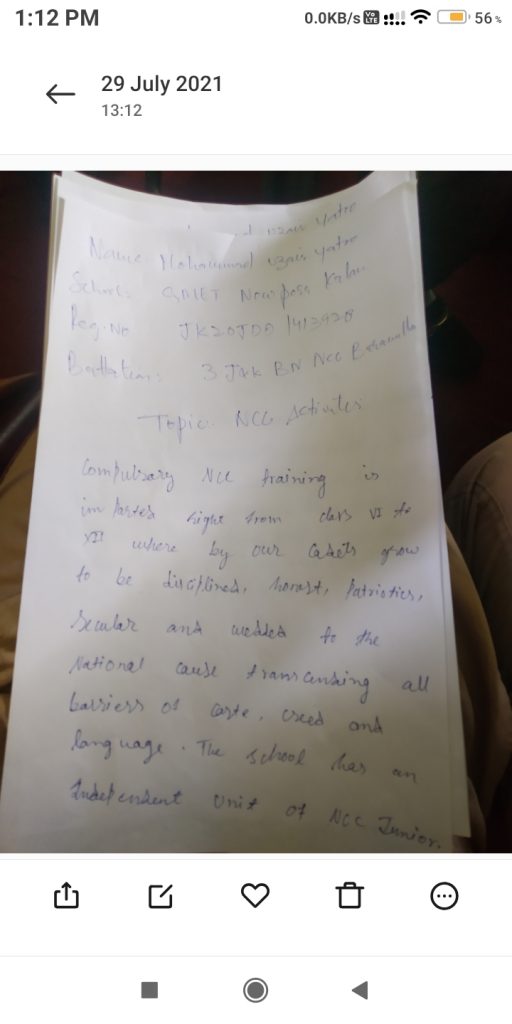 1:12 PM
0.0KB/s Vo LTE 56%
29 July 2021
13:12
Yatoo
Name: Mohammad uzair yatoo
School: GMET Nowpora Kalan
Reg. No JK20JDA 1413928
Battalian: 3 J&K BN Ncc Baramulla
Topic. NCC Activites
Compulsary Ncc training is
imparted right from class VI to
XII where by our cadets grow
to be disciplined, honest, Patriotics,
Secular and wedded to the
National cause transcending all
barriers of caste, creed and
language. The school has an
Independent Unit of NCC Junior.